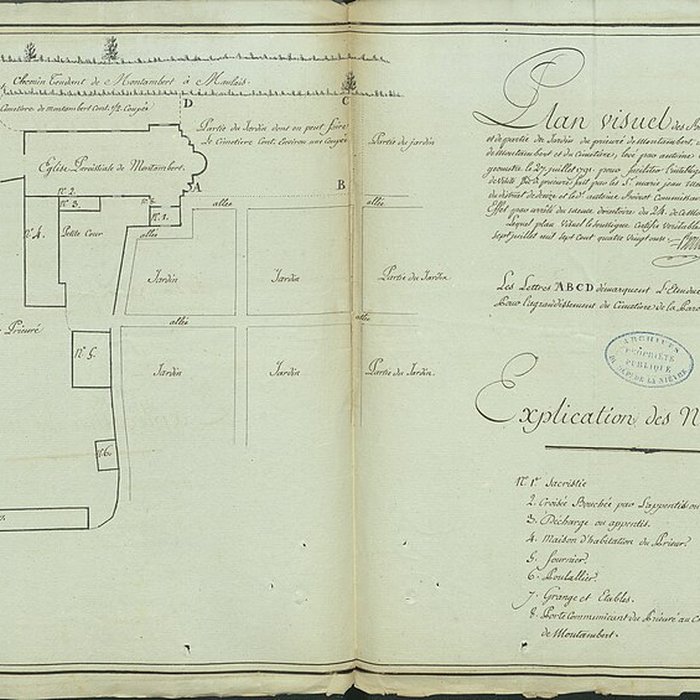 Chemin Tendent de Montambert à Maulais
Cemetière de montambert Cont. Coupée
D
C
Partie du Jardin dont on peut faire
Le Cimetière Cont. Environ une Coupée
Partie du jardin
Eglise Paroissiale de Montambert.
A
B
n.° 2.
n.° 3.
8.
n.° 1.
allée
allée
allée
n.° 4.
Petite Cour
Jardin
Jardin
Partie du Jardin
Prieuré
allée
allée
N.° 5.
Jardin
Jardin
Partie du Jardin.
n.° 6.
7.
Plan visuel des
et de partie du Jardin du prieuré de Montambert,
de Montambert et du Cimetière, levé par antoine
geometre le 27 juillet 1791 pour faciliter
de visite
du district de decize et le S.r antoine Commissaire
Effet par arrêté du
Lequel plan Visuel le soussigné Certifie Véritable
sept juillet mil sept cent quatre vingt onze.
Les Lettres ABCD démarquent L'Etendue
Pour l'agrandissement du Cimetière de la
ARCHIVES
PROPRIÉTÉ
PUBLIQUE
DÉP.T DE LA NIÈVRE
Explication des N
N.° 1.er Sacristie
2. Croisée Bouchée par L'appentis ou
3. Décharge ou appentis.
4. Maison d'habitation du Prieur.
5. Fournier.
6. Poulallier.
7. Grange et Etables.
8. Porte Communicant du Prieuré au
de Montambert.